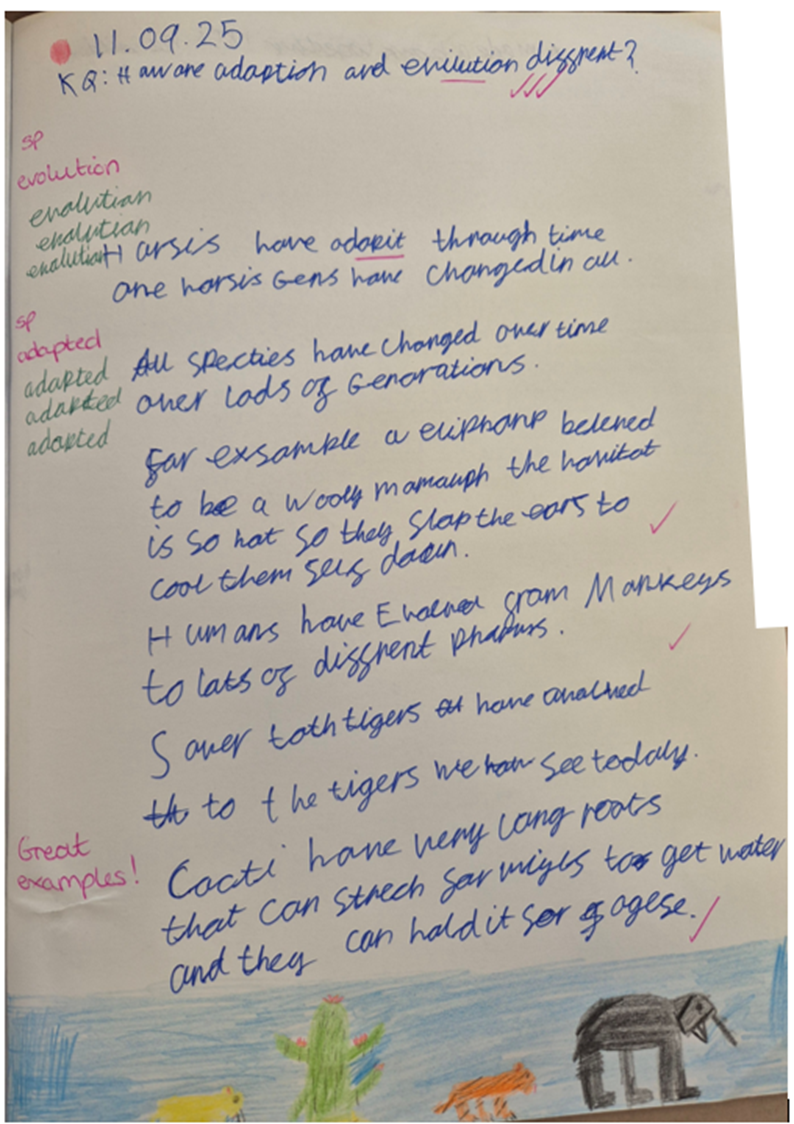 11.09.25
KQ: Haw are adaption and evilution diffrent?
sp
evolution
evolutian
evolutian
evolutian
Horsis have adapit through time
one horsis Gens have changed in all.
sp
adapted
adapted
adapted
adapted
All specties have changed over time
over lods of Genorations.
For exsample a eliphant
to be a wooly mamauph the havitat
is so hot so they flap the ears to
cool them self down.
Humans have from Mankeys
to lats of diffrent
Saver tothtigers have
to the tigers we now see today.
Great
examples!
Cacti have very long roots
that can strech for to get water
and they can hold it for agese.